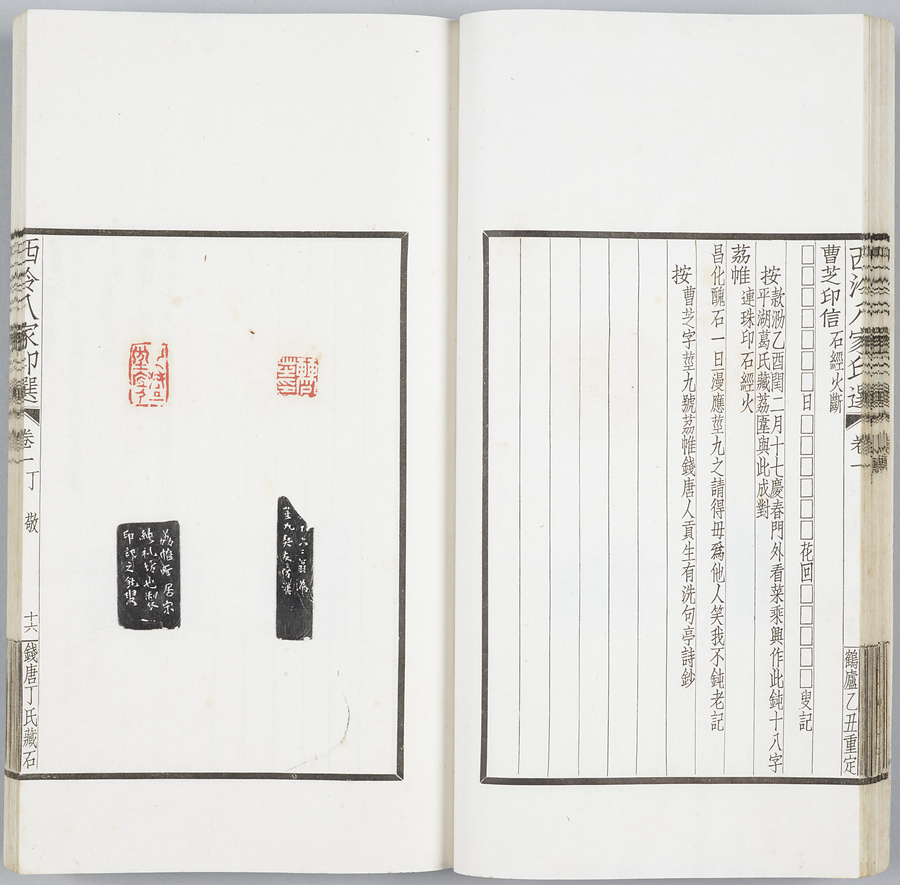 西泠八家印選 卷一 鶴廬乙丑重定
曹芝印信 石經火斷
□□□□□□日□□□□□花回□□□□叟記
按 款泐乙酉閏二月十七慶春門外看菜乘興作此鈍十八字
平湖葛氏藏荔圍與此成對
荔帷 連珠印石經火
昌化醜石一旦漫應莖九之請得毋爲他人笑我不鈍老記
按 曹芝字莖九號荔帷錢唐人貢生有洗句亭詩鈔
莖九
荔帷所居宋
純礼坊也
印記之鈍叟
西泠八家印選 卷一 丁敬 十六 錢唐丁氏藏石